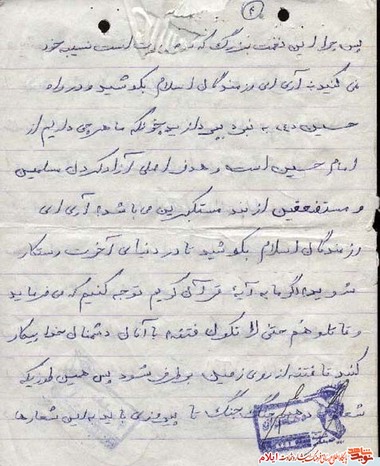 ۴
پس چرا این نعمت بزرگ که است نصیب خود
نمی کنید آری ای رزمندگان اسلام بکوشید و در راه
حسین (ع) به نبرد بپردازید چونکه ما هر چی داریم از
امام حسین است و هدف اصلی آزاد کردن مسلمین
و مستضعفین از بند مستکبرین می باشد آری ای
رزمندگان اسلام بکوشید تا در دنیای آخرت رستگار
شوید اگر ما به آیه قرآن کریم توجه کنیم که می فرماید
و قاتلوهم حتی لا تکون فتنه با آنان دشمنان خدا پیکار
کنید تا فتنه از روی زمین برطرف شود پس همین طور که
جنگ تا پیروزی باید به این شعارها
نوید شاهد ایلام